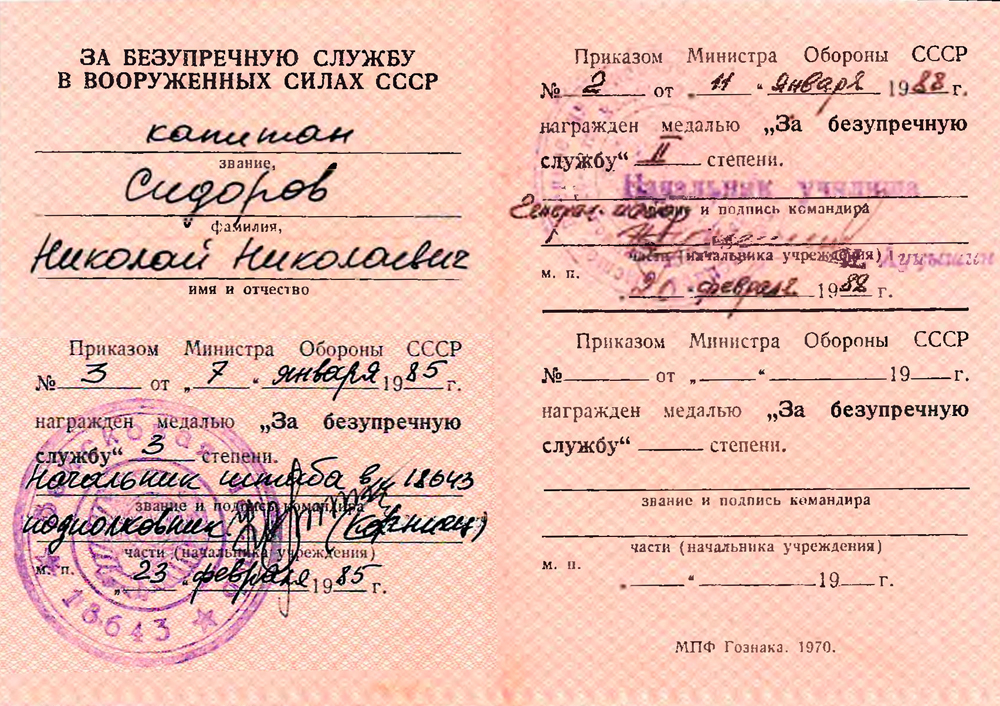 ЗА БЕЗУПРЕЧНУЮ СЛУЖБУ
В ВООРУЖЕННЫХ СИЛАХ СССР
капитан
звание,
Сидоров
фамилия,
Николай Николаевич
имя и отчество
Приказом Министра Обороны СССР
№ 3 от „ 7 “ января 1985 г.
награжден медалью „За безупречную
службу“ 3 степени.
Начальник штаба в/ч 18643
звание и подпись командира
подполковник
части (начальника учреждения)
м. п.
„ 23 “ февраля 1985 г.
18643
Приказом Министра Обороны СССР
№ 2 от „ 11 “ января 1988 г.
награжден медалью „За безупречную
службу“ II степени.
Начальник училища
Генерал-майор
звание и подпись командира
части (начальника учреждения)
м. п.
февраля 1988 г.
Приказом Министра Обороны СССР
№ от „ “ 19 г.
награжден медалью „За безупречную
службу“ степени.
звание и подпись командира
части (начальника учреждения)
м. п.
„ “ 19 г.
МПФ Гознака. 1970.